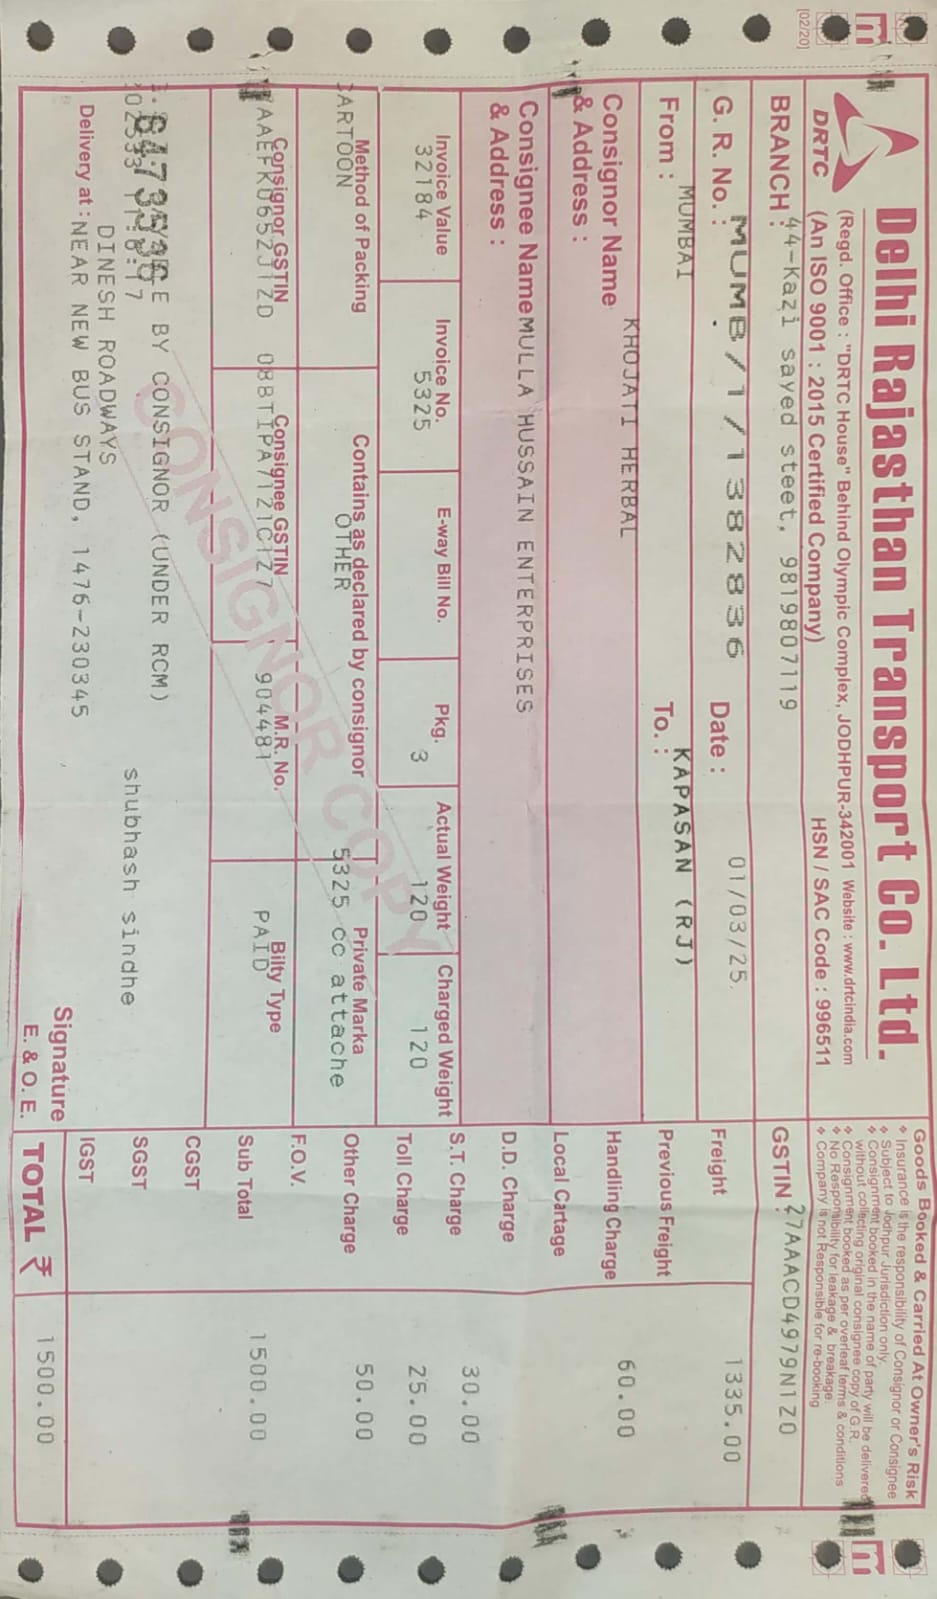 [02/20]
Delhi Rajasthan Transport Co. Ltd.
(Regd. Office : "DRTC House" Behind Olympic Complex, JODHPUR-342001 Website : www.drtcindia.com
DRTC (An ISO 9001 : 2015 Certified Company) HSN / SAC Code : 996511
Goods Booked & Carried At Owner's Risk
❖ Insurance is the responsibility of Consignor or Consignee
❖ Subject to Jodhpur Jurisdiction only.
❖ Consignment booked in the name of party will be delivered
without collecting original consignee copy of G.R.
❖ Consignment booked as per overleaf terms & conditions
❖ No Responsibility for leakage & breakage.
❖ Company is not Responsible for re-booking
BRANCH : 44-Kazi sayed steet, 9819807119
GSTIN : 27AAACD4979N1Z0
G. R. No. : MUMB/1/1382836 Date : 01/03/25
From : MUMBAI To. : KAPASAN (RJ)
Consignor Name KHOJATI HERBAL
& Address :
Consignee Name MULLA HUSSAIN ENTERPRISES
& Address :
Invoice Value Invoice No. E-way Bill No. Pkg. Actual Weight Charged Weight
32184 5325 3 120 120
Method of Packing Contains as declared by consignor Private Marka
CARTOON OTHER 5325 cc attache
Consignor GSTIN Consignee GSTIN M.R. No. Bilty Type
904481 PAID
6473536
E BY CONSIGNOR (UNDER RCM)
shubhash sindhe
DINESH ROADWAYS
Delivery at : NEAR NEW BUS STAND, 1476-230345
Signature
E. & O. E.
CONSIGNOR COPY
Freight 1335.00
Previous Freight
Handling Charge 60.00
Local Cartage
D.D. Charge
S.T. Charge 30.00
Toll Charge 25.00
Other Charge 50.00
F.O.V.
Sub Total 1500.00
CGST
SGST
IGST
TOTAL ₹ 1500.00